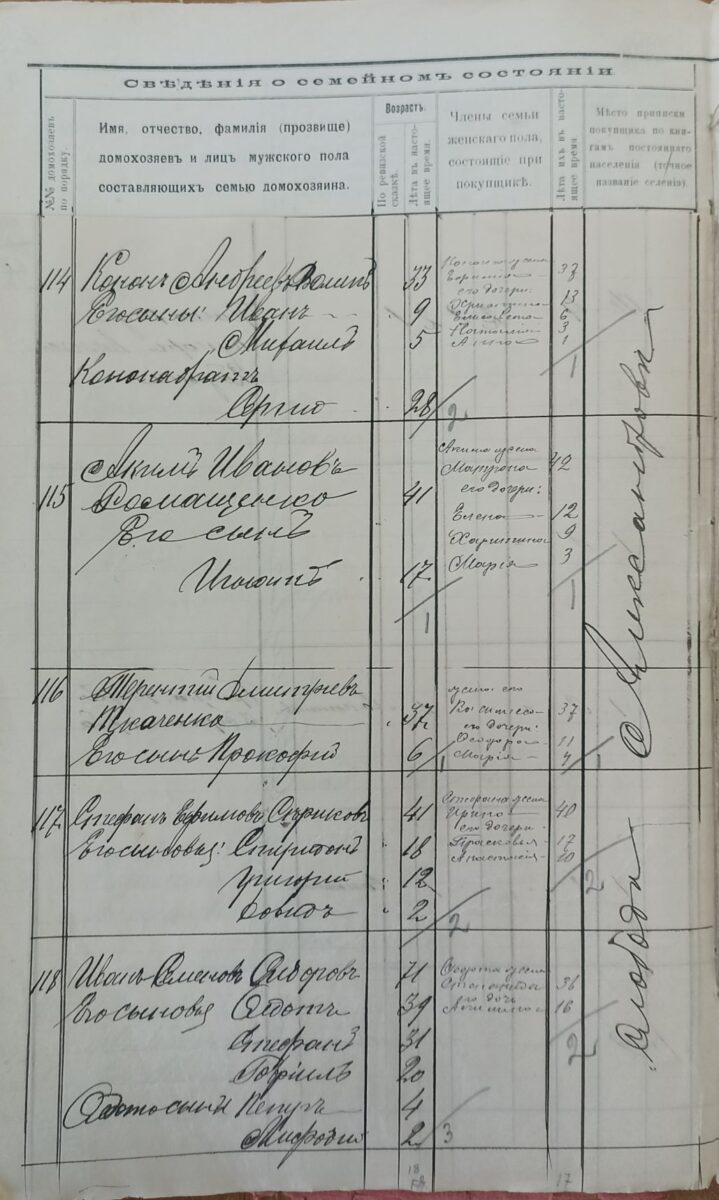 СВѢДѢНІЯ О СЕМЕЙНОМЪ СОСТОЯНІИ
№№ домохозяевъ по порядку.
Имя, отчество, фамилія (прозвище)
домохозяевъ и лицъ мужского пола
составляющихъ семью домохозяина.
Возрастъ.
По ревизской сказкѣ.
Лѣта въ настоящее время.
Члены семьи
женскаго пола,
состоящіе при
покупщикѣ.
Лѣта ихъ въ настоящее время.
Мѣсто приписки
покупщика по книгамъ постояннаго
населенія (точное
названіе селенія).
114 Кононъ Андреевъ 33
33
его дочери:
Его сыны: Иванъ 9
13
Елисавета 6
3
Михаилъ 5
Анна 1
1
28
2
115 Акимъ Ивановъ
Матрона 42
Ромащенко 41
его дочери:
Его сынъ
Елена 12
Харитина 9
17
Марія 3
1
1
116 Терентій Дмитріевъ
жена его
Ткаченко 37
37
его дочери:
Его сынъ Прокофій 6
Ѳеодора 11
Марія 7
1
1
117 Стефанъ Ефимовъ 41
Ирина 40
его дочери:
Его сыновья: Спиридонъ 18
Прасковья 17
Анастасія 10
Григорій 12
2
Давидъ 2
2
118 Иванъ Семеновъ Сидоровъ 71
36
Его сыновья Ѳедотъ 39
его дочь
16
Стефанъ 31
2
Гавріилъ 20
4
Мефодій 2
3
18
17
Слобода Александровка